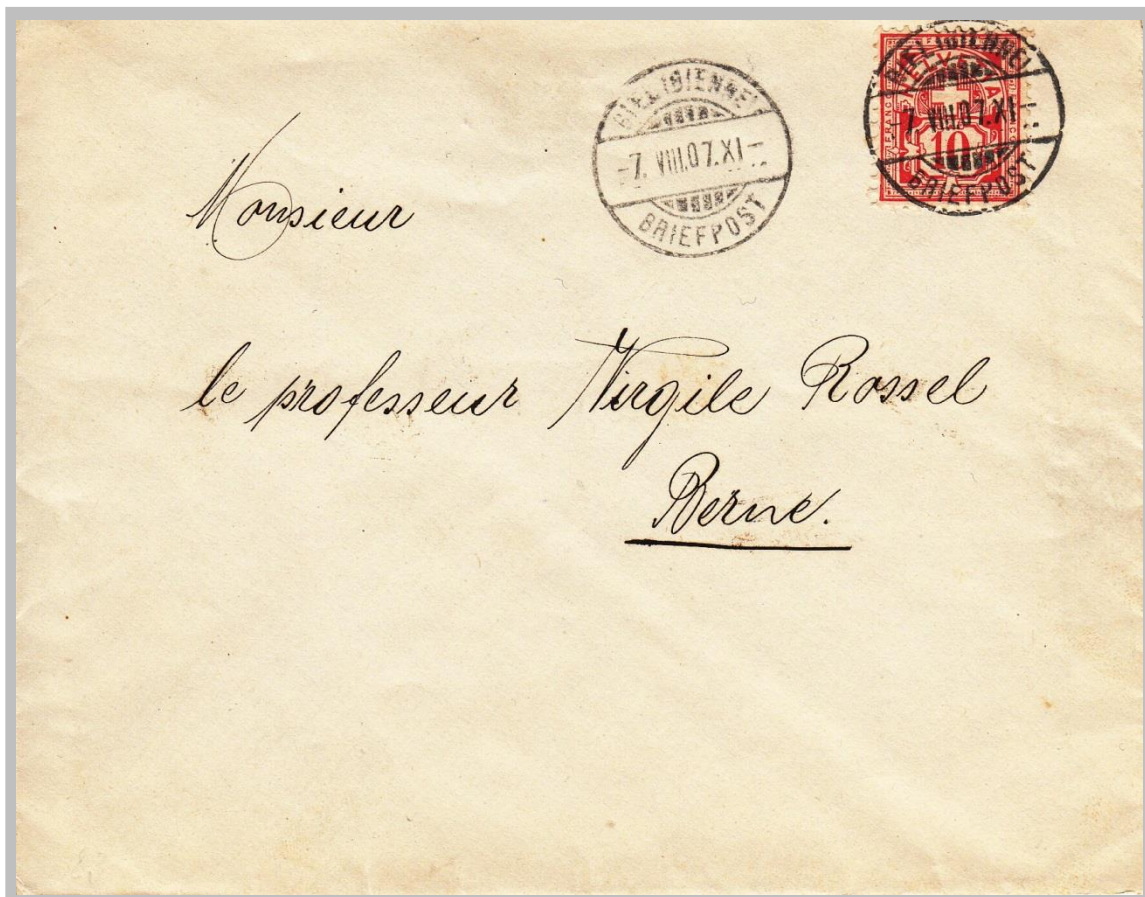 BIEL (BIENNE)
-7. VIII.07.XI-
BRIEFPOST
BIEL (BIENNE)
-7. VIII.07.XI-
BRIEFPOST
HELVETIA
FRANCO
10
Monsieur
le professeur Virgile Rossel
Berne.